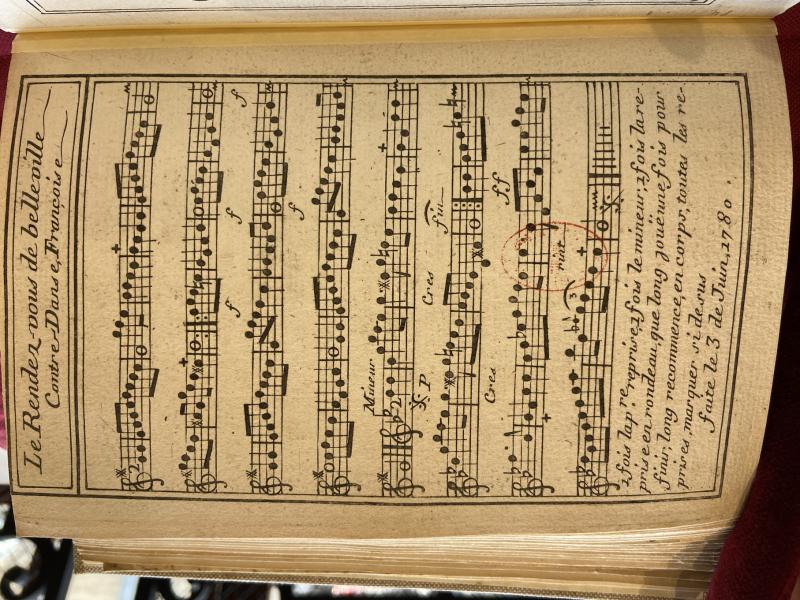 Le Rendez-vous de belleville
Contre Danse, Françoise
f
f
f
f
Mineur
P
Cres
fin
Cres
ff
2 fois la p.re reprise, 2 fois le mineur, 2 fois la re-
prise en rondeau, que long jouë une fois pour
finir, long recommence, en corps, toutes les re-
prises marquer si desus
faite le 3 de Juin, 1780.